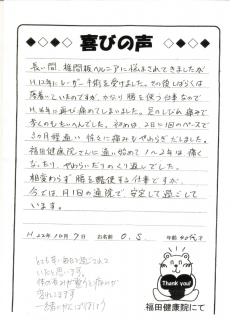 喜びの声
長い間、椎間板ヘルニアに悩まされてきましたが
H.12年にレーザー手術を受けました。その後しばらくは
落着いていたのですが、かなり腰を使う仕事なので
H.18年に再び痛めてしまいました。足のしびれ、痛みで
歩くのもたいへんでした。初めは、2日に1回のペースで
3ヶ月程通い徐々に痛みもやわらぎだしました。
福田健康院さんに通い始めて1〜2年は痛く
なったり、やわらいだりのくり返しでした。
相変わらず腰を酷使する仕事ですが、
今では、月1回の通院で安定して過ごして
います。
H.22年10月9日 お名前 O.S. 年齢 40代才
Thank you!
福田健康院にて